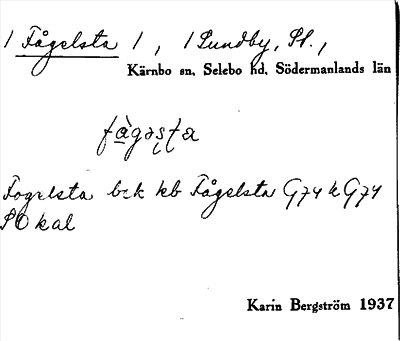 1 Fågelsta 1, 1 Sundby, St.,
Kärnbo sn, Selebo hd, Södermanlands län
fågəsta
Fogelsta bek kb Fågelsta G74 k G74
SO kal
Karin Bergström 1937